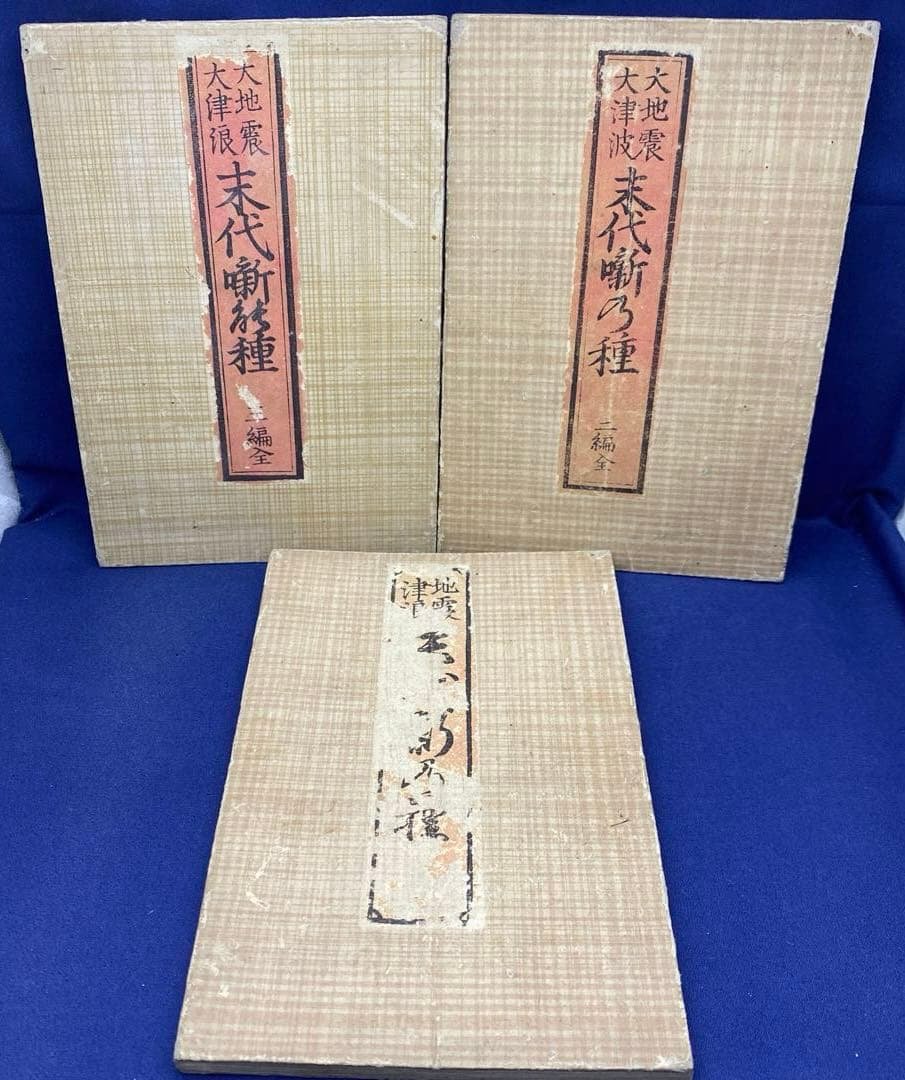 大地震
大津波
末代噺乃種
二編全
大地震
大津浪
末代噺能種
三編全
地震
津浪
噺乃種